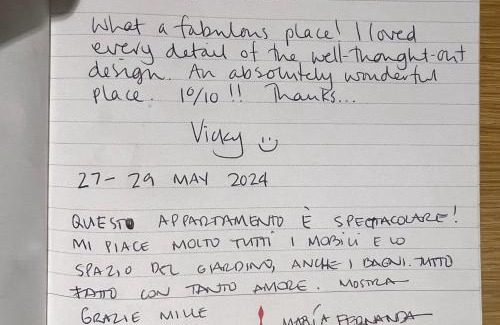 What a fabulous place! I loved
every detail of the well-thought-out
design. An absolutely wonderful
place. 10/10 !! Thanks...
Vicky
27- 29 MAY 2024
QUESTO APPARTAMENTO È SPECTACOLARE!
MI PIACE MOLTO TUTTI I MOBILI E LO
SPAZIO DEL GIARDINO, ANCHE I BAGNI. TUTTO
FATTO CON TANTO AMORE. MOSTRA
GRAZIE MILLE
MARÍA FERNANDA